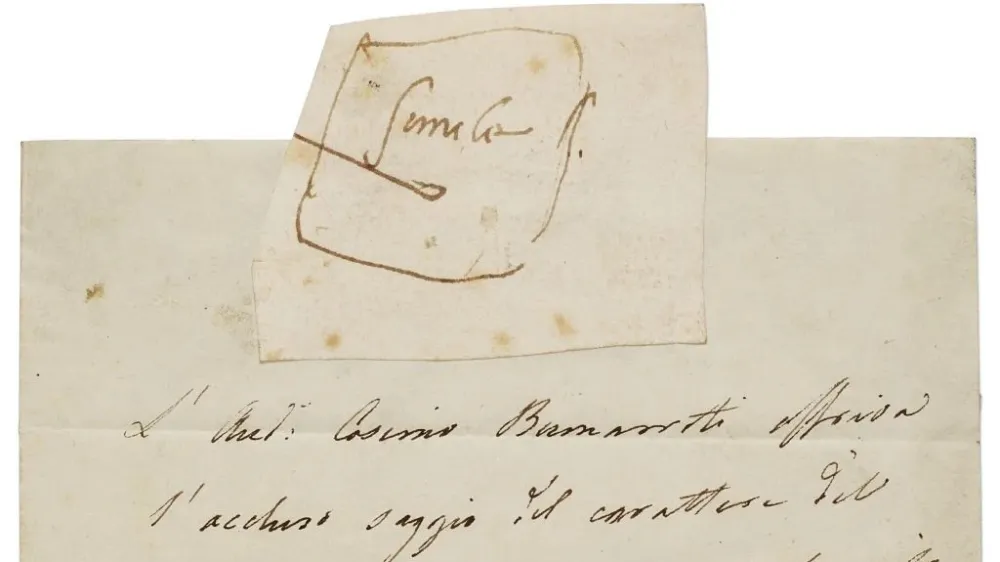 simile
L' Aud.e Cosimo Buonarroti offriva
l' accluso saggio del carattere del